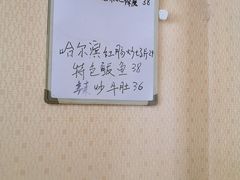 38
哈尔滨红肠炒蒜苔28
特色鲅鱼38
辣炒牛肚36